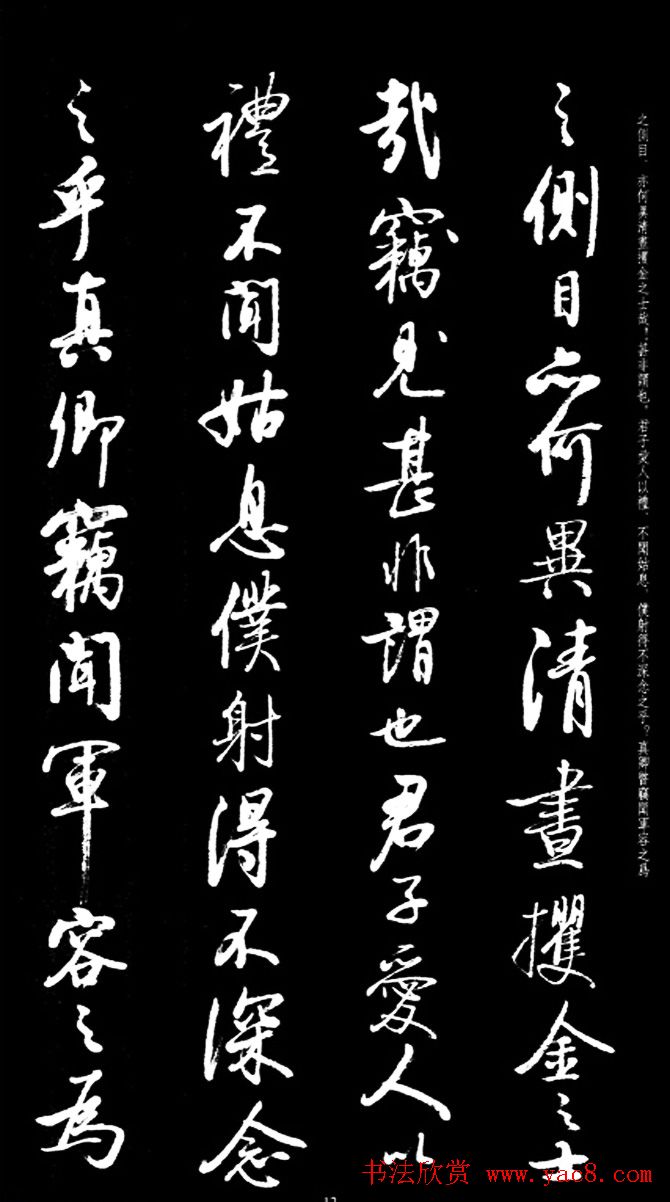 之側目、亦何異清晝攫金之士哉！甚非謂也。君子愛人以禮、不聞姑息、僕射得不深念之乎？真卿竊聞軍容之爲
之側目亦何異清晝攫金之士
哉竊見甚非謂也君子愛人以
禮不聞姑息僕射得不深念
之乎真卿竊聞軍容之為
书法欣赏 www.yac8.com